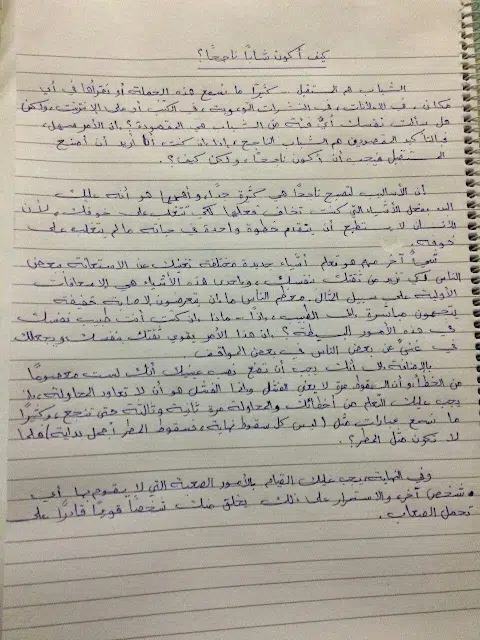 كيف أكون شابًا ناجحًا؟
الشباب هم المستقبل - كثيرًا ما نسمع هذه الجملة أو نقرأها في أي
مكان، في الاعلانات، في النشرات التوعوية، في الكتب أو على الإنترنت، ولكن
هل سألت نفسك أيُّ فئة من الشباب هي المقصودة؟ إن الأمر سهل،
فبالتأكيد المقصودين هم الشباب الناجح، إذًا إن كنت أنا أريد أن أصنع
المستقبل فيجب أن أكون ناجحًا، ولكن كيف؟.
أن الأساليب لتصبح ناجحًا هي كثيرة جدًا، وأهمها هو أنه عليك
البدء بفعل الأشياء التي كنت تخاف فعلها كي تتغلب على خوفك، لأن
الإنسان لا يستطيع أن يتقدم خطوة واحدة في حياته مالم يتغلب على
خوفه.
شيءٌ آخر مهم هو تعلم أشياء جديدة مختلفة تغنيك عن الاستعانة ببعض
الناس لكي تزيد من ثقتك بنفسك، وواحدى هذه الأشياء هي الاسعافات
الأولية على سبيل المثال. معظم الناس ما إن يتعرضون لإصابة خفيفة
يتجهون مباشرة إلى الطبيب، إذًا ماذا إن كنت أنت طبيب نفسك
في هذه الأمور البسيطة؟ إن هذا الأمر يقوي ثقتك بنفسك، ويجعلك
في غنىً عن بعض الناس في بعض المواقف.
بالإضافة إلى أنك يجب أن تضع نصب عينيك أنك لست معصومًا
من الخطأ، وأن السقوط مرة لا يعني الفشل وإنما الفشل هو أن لا تعاود المحاولة، بل
يجب عليك التعلم من أخطائك والمحاولة مرة ثانية وثالثة حتى تنجح، وكثيرًا
ما نسمع عبارات مثل (ليس كل سقوط نهاية، فسقوط المطر أجمل بداية) فلما
لا تكون مثل المطر؟.
وفي النهاية، يجب عليك القيام بالأمور الصعبة التي لا يقوم بها أي
شخص آخر، والاستمرار على ذلك يخلق منك شخصًا قويًا قادرًا على
تحمل الصعاب.